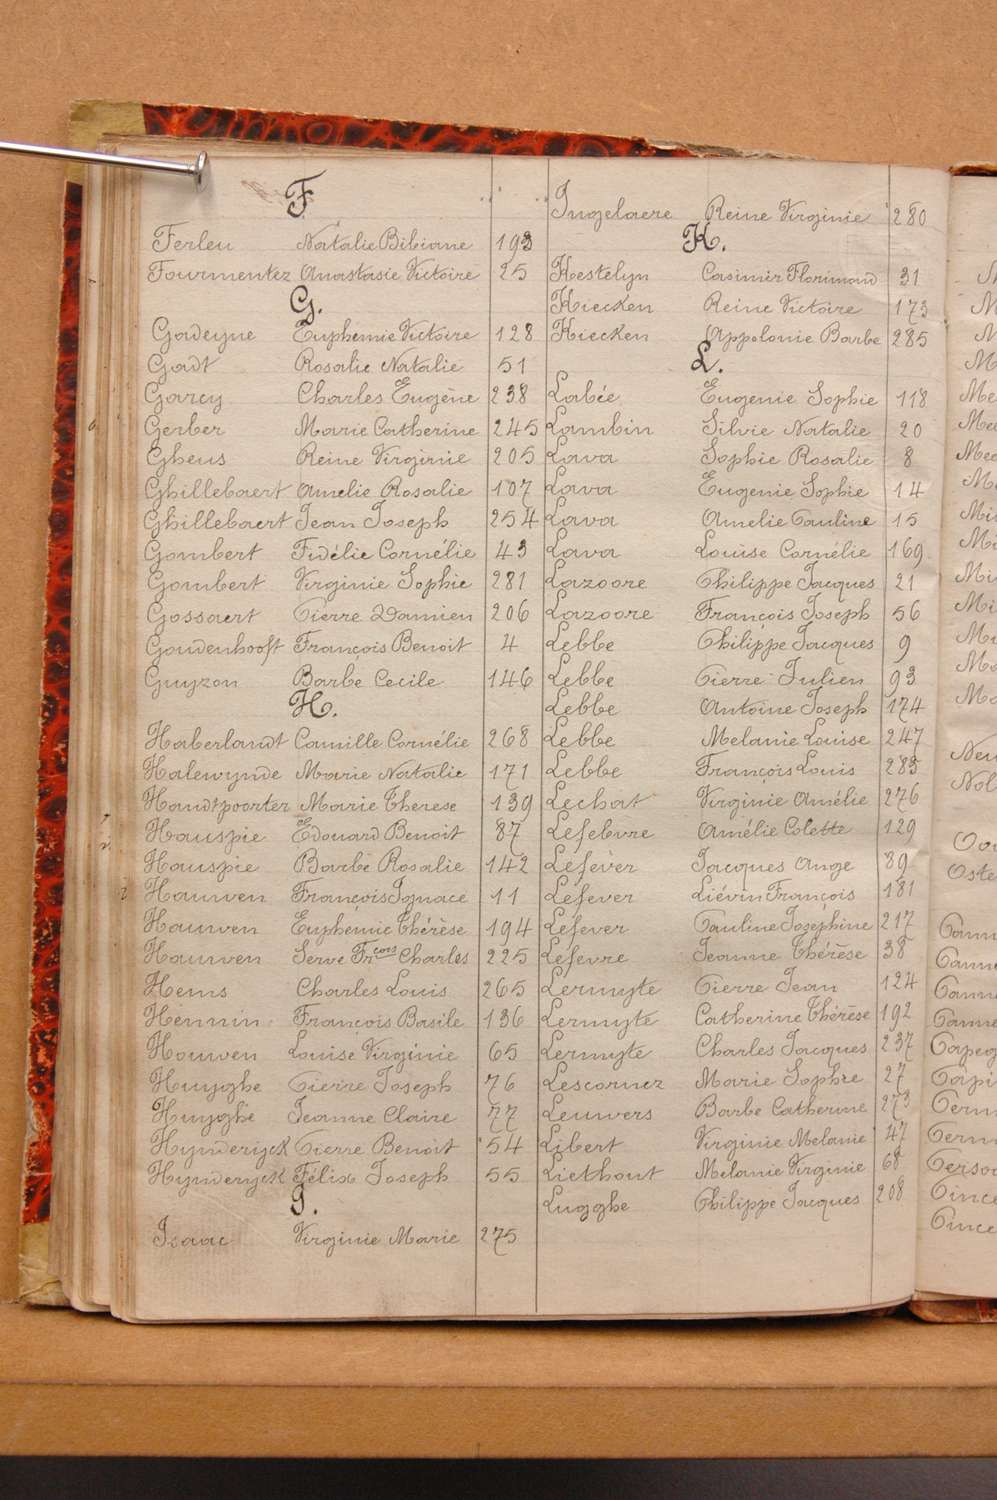 F
Ferleu Natalie Bibiane 193
Fourmentez Anastasie Victoire 25
G.
Gadeyne Euphemie Victoire 128
Gadt Rosalie Natalie 51
Garcy Charles Eugène 238
Gerber Marie Catherine 245
Gheus Reine Virginie 205
Ghillebaert Amelie Rosalie 107
Ghillebaert Jean Joseph 254
Gombert Fidélie Cornélie 43
Gombert Virginie Sophie 281
Gossaert Pierre Damien 206
Goudenhooft François Benoit 4
Guyzon Barbe Cecile 146
H.
Haberlandt Camille Cornélie 268
Halewynde Marie Natalie 171
Handtpoorter Marie Therese 139
Hauspie Edouard Benoit 87
Hauspie Barbe Rosalie 142
Hauwen François Ignace 11
Hauwen Euphemie Thérèse 194
Hauwen Serve Frcois Charles 225
Hems Charles Louis 265
Hennin François Basile 136
Houwen Louise Virginie 65
Huyghe Pierre Joseph 76
Huyghe Jeanne Claire 77
Hynderijck Pierre Benoit 54
Hynderijck Félix Joseph 55
I.
Isaac Virginie Marie 275
Ingelaere Reine Virginie 280
K.
Kestelyn Casimir Florimond 31
Kiecken Reine Victoire 173
Kiecken Appolonie Barbe 285
L.
Labée Eugenie Sophie 118
Lambin Silvie Natalie 20
Lava Sophie Rosalie 8
Lava Eugenie Sophie 14
Lava Amelie Pauline 15
Lava Louise Cornélie 169
Lazoore Philippe Jacques 21
Lazoore François Joseph 56
Lebbe Philippe Jacques 9
Lebbe Pierre Julien 93
Lebbe Antoine Joseph 174
Lebbe Melanie Louise 247
Lebbe François Louis 283
Lechat Virginie Amélie 276
Lefebvre Amélie Colette 129
Lefèver Jacques Ange 89
Lefever Liévin François 181
Lefever Pauline Josephine 217
Lefevre Jeanne Thérèse 38
Lermyte Pierre Jean 124
Lermyte Catherine Thérèse 192
Lermyte Charles Jacques 237
Lescornez Marie Sophie 27
Leuwers Barbe Catherine 273
Libert Virginie Melanie 47
Liethout Melanie Virginie 68
Lugghe Philippe Jacques 208